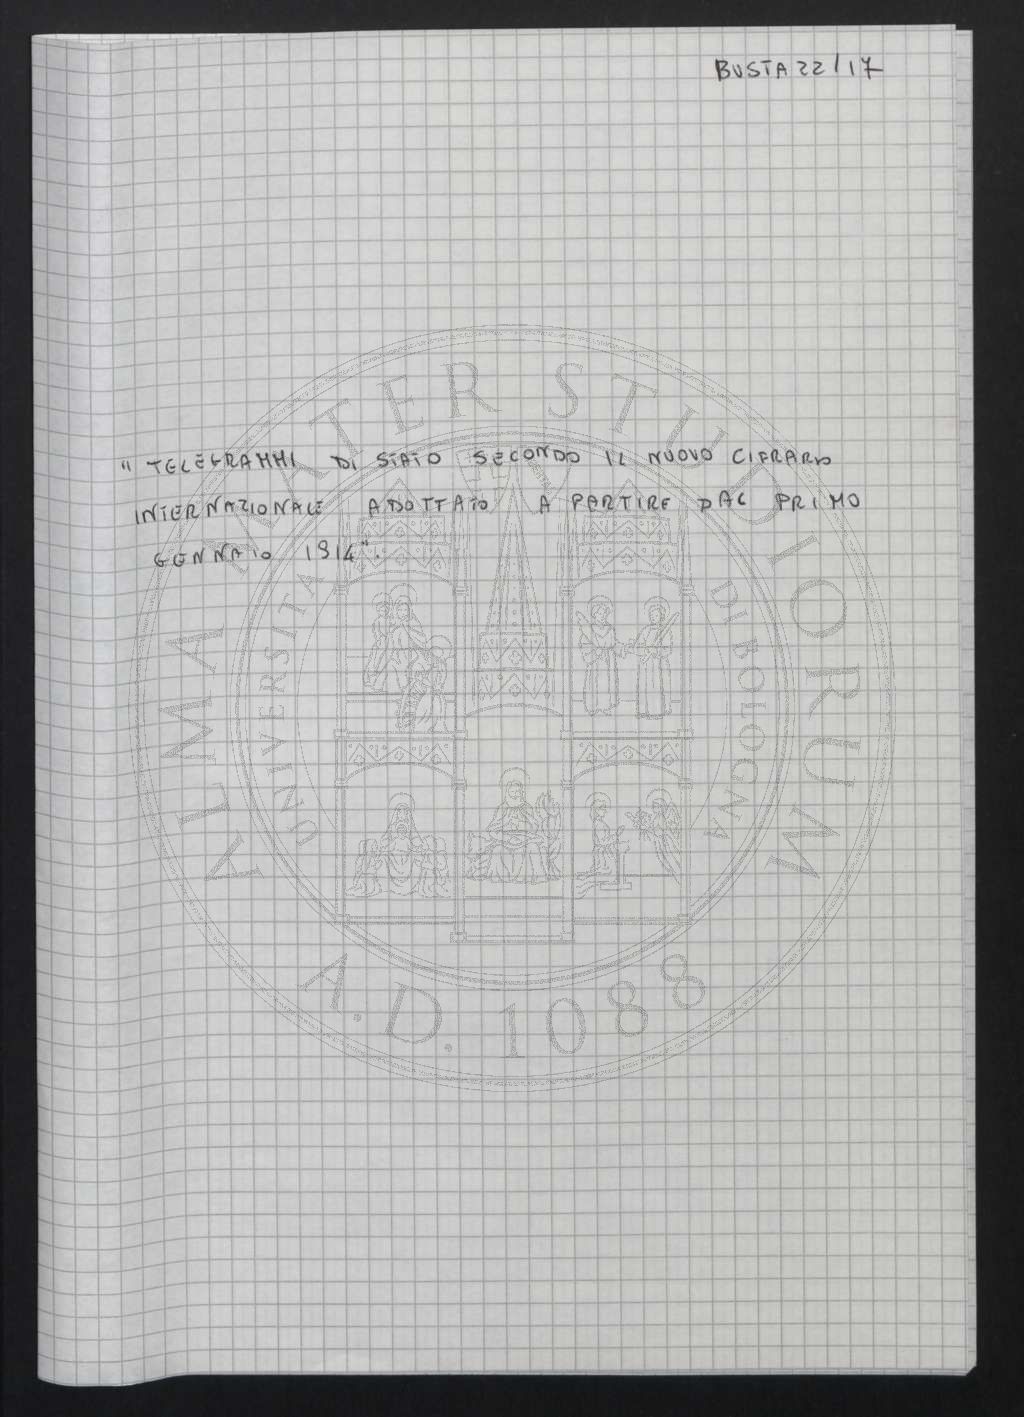 BUSTA 22/17
" TELEGRAMMI DI STATO SECONDO IL NUOVO CIFRARIO
INTERNAZIONALE ADOTTATO A PARTIRE DAL PRIMO
GENNAIO 1914".
ALMA MATER STUDIORUM
UNIVERSITÀ DI BOLOGNA
A.D. 1088